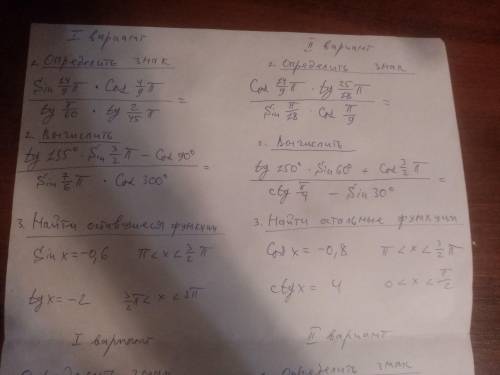 I вариант
1. Определить знак
Sin 24/9 π · Cos 4/9 π
tg π/60 · tg 2/45 π =
2. Вычислить
tg 135° · Sin 3/2 π - Cos 90°
Sin 7/6 π · Cos 300° =
3. Найти оставшиеся функции
Sin x = -0,6 π < x < 3/2 π
tg x = -2 3/2 π < x < 2π
I вариант
Определить знак
II вариант
1. Определить знак
π · tg 25/18 π
Sin π/18 · Cos π/9 =
2. Вычислить
· Sin 60° + Cos 3/2 π
ctg π/4 - Sin 30° =
3. Найти остальные функции
Cos x = -0,8 π < x < 3/2 π
ctg x = 4 0 < x < π/2
II вариант
знак